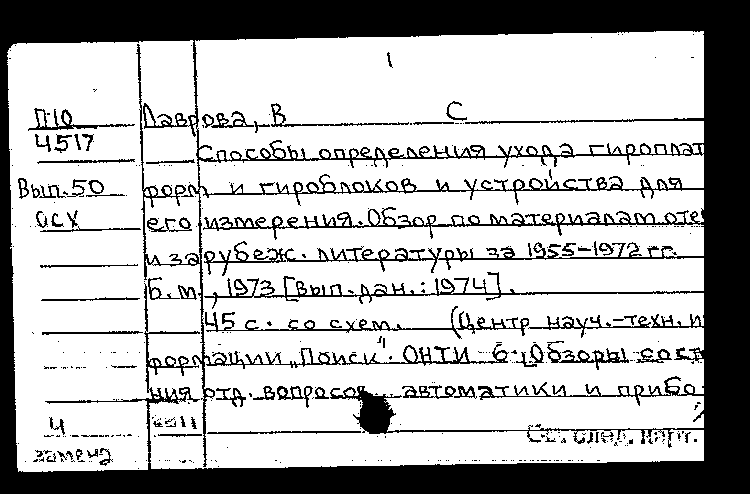 1
П10 Лаврова, В С
4517
Способы определения ухода гироплат
Вып.50 форм и гироблоков и устройства для
ОСХ его измерения. Обзор по материалам оте
и зарубеж. литературы за 1955-1972 гг.
Б.м., 1973 [вып.дан.:1974].
45 с. со схем. (Центр науч.-техн. и
формации „Поиск". ОНТИ - 6. Обзоры сост
ния отд. вопросов автоматики и прибо
4
См. след. карт.
замена